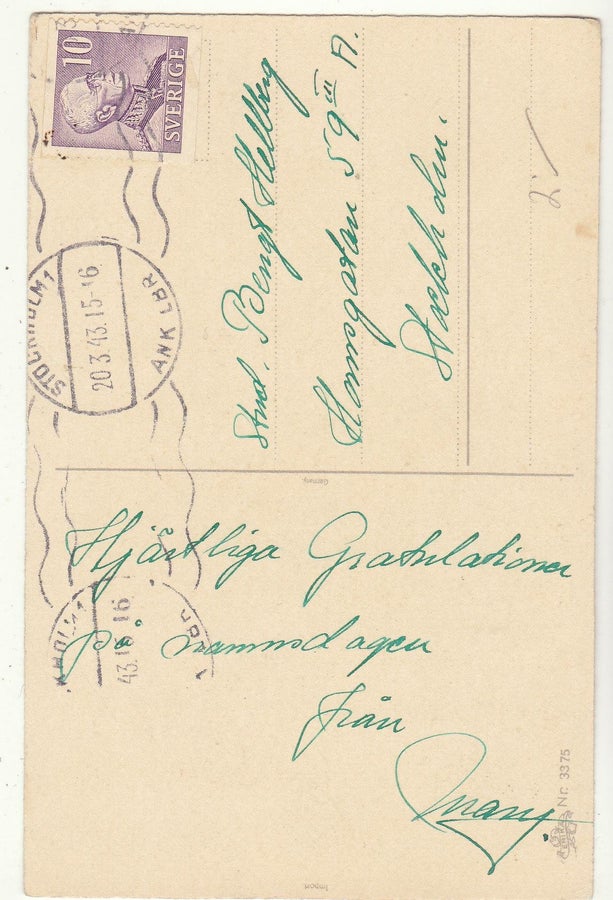 10
SVERIGE
STOCKHOLM 1
20 3 43.15-16
ANK LBR
Stud. Bengt Hellberg
Hornsgatan 59 III A.
Stockholm.
Germany
Hjärtliga Gratulationer
på namnsdagen
från
Mary.
KHOLM 1
43.15-16
LBR
Nr. 3375
Import